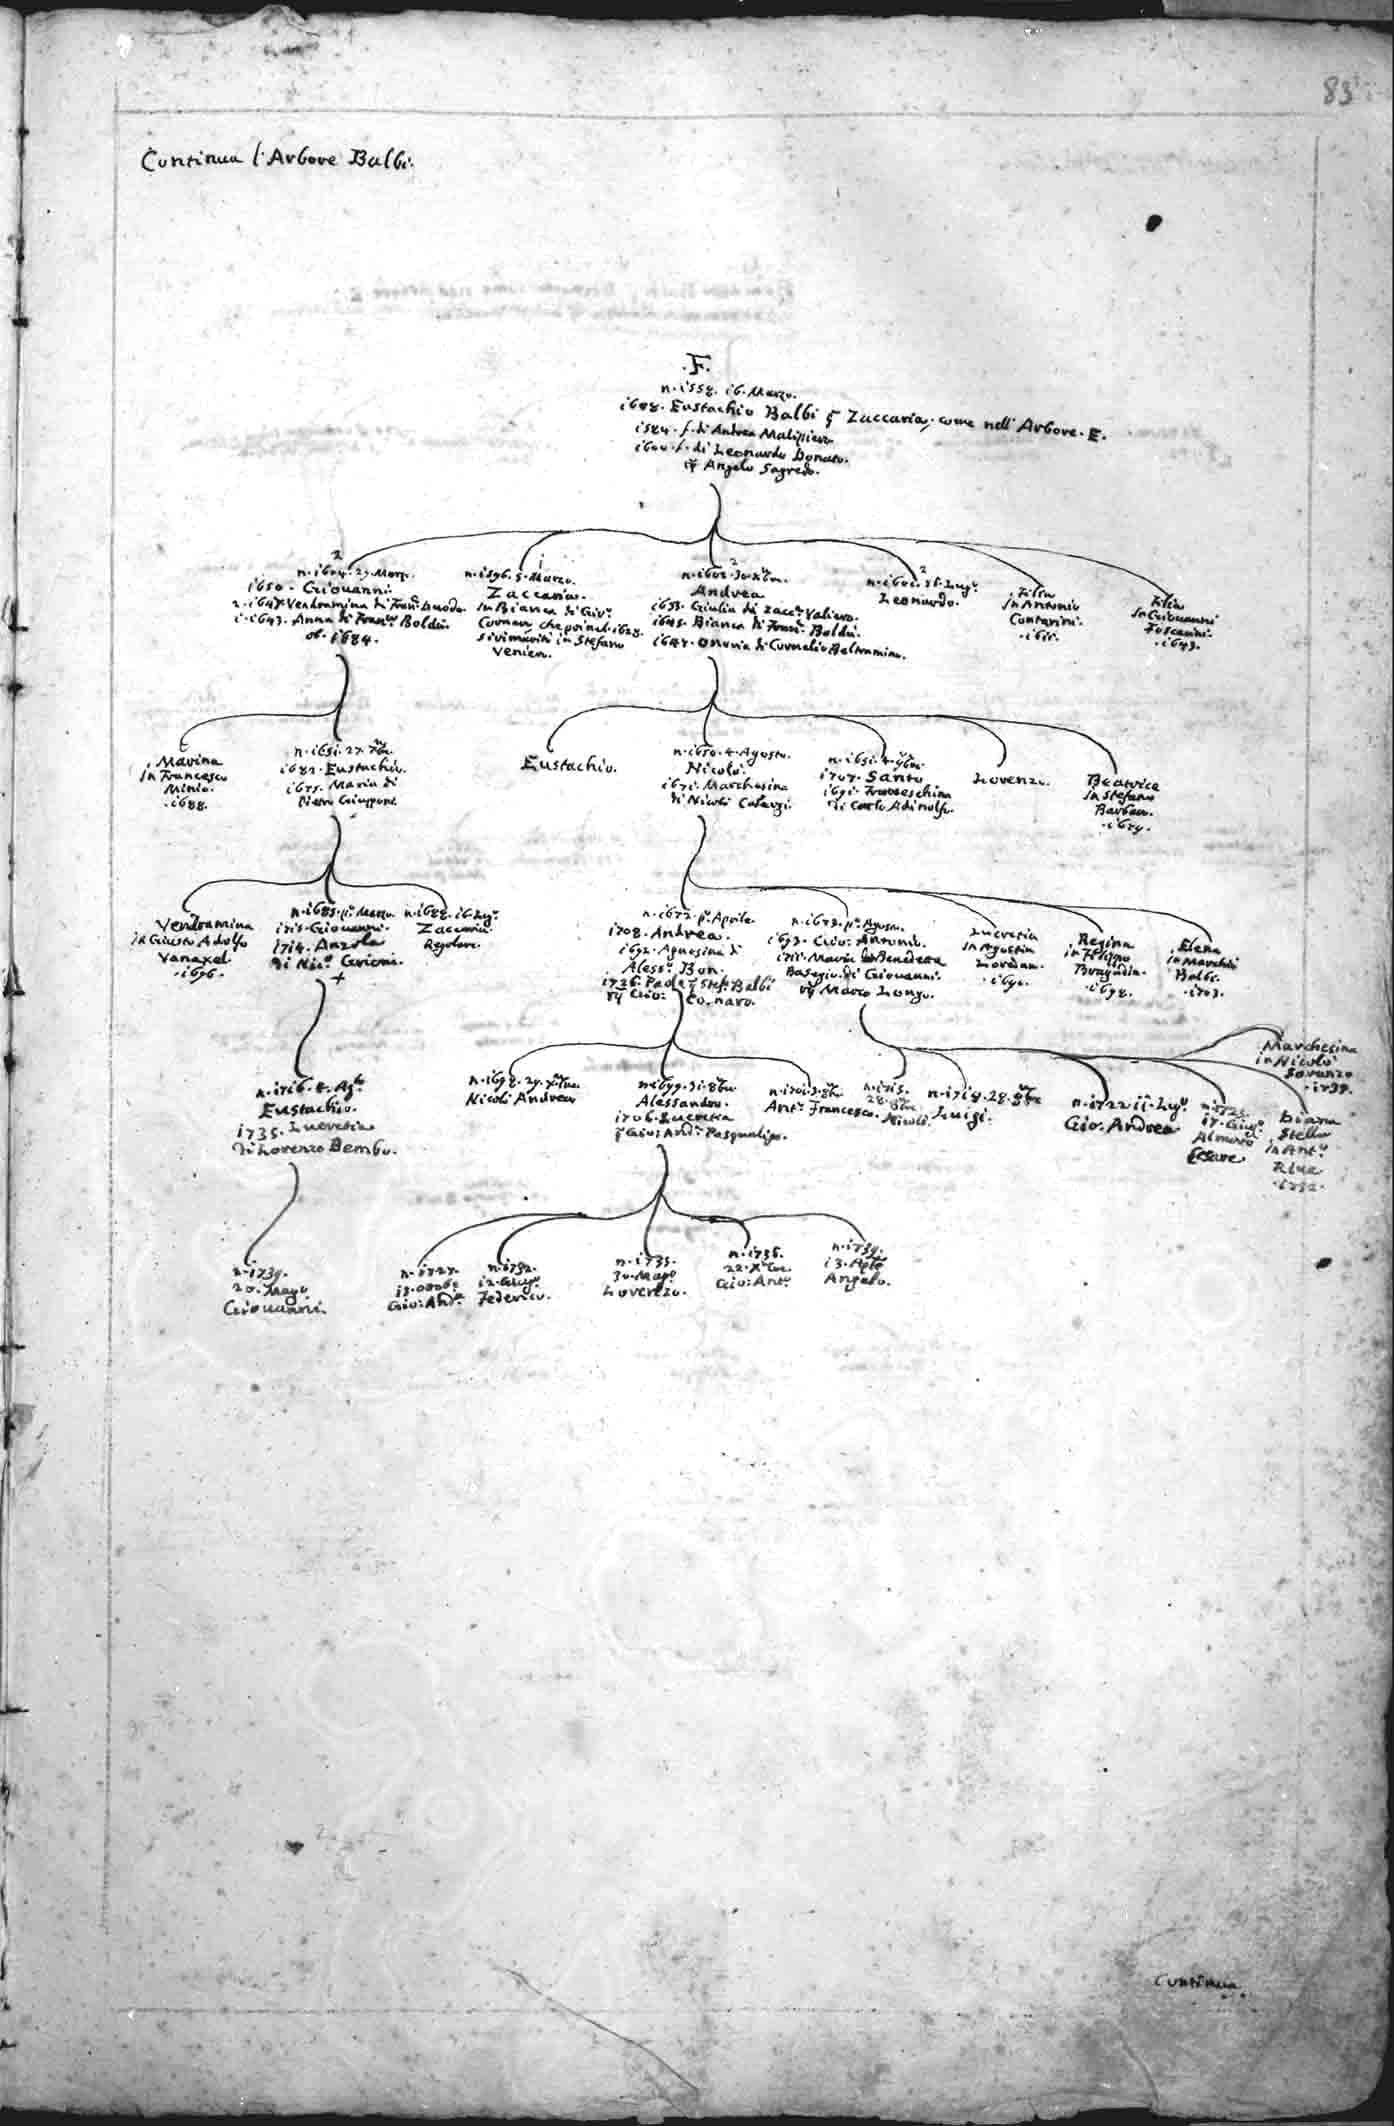 83
Continua l'Arbore Balbi.
.F.
n. 1558. 16. Marzo.
1608. Eustachio Balbi q Zaccaria, come nell' Arbore. E.
1584. f. di Andrea Malipiero
1600. f. di Leonardo Donato.
rq Angelo Sagredo.
2
n. 1604. 27. Marzo.
1650. Giovanni.
2. 1647. Vendramina di Franc. Duodo.
1. 1643. Anna di Franc. Boldù.
ob. 1684.
1
n. 1596. 5. Marzo.
Zaccaria.
in Bianca di Gio.
Corner che poi nel 1628.
si rimaritò in Stefano
Venier.
2
Andrea
1633. Giulia di Zacc. Valiero.
1645. Bianca di Franc. Boldù.
1647. Onoria di Cornelio Beltramino.
2
Leonardo.
Filia
in Antonio
Contarini.
Filia
in Giovanni
Foscarini.
.1643.
Marina
in Francesco
Minio.
.1688.
n. 1651. 27. Xbre.
1682. Eustachio.
1675. Maria di
Pietro Giuppont.
Eustachio.
n. 1650. 4. Agosto.
Nicolò.
1671. Marchesina
di Nicolò
n. 1651. 4. 9bre.
1707. Santo
1691. Franceschina
di Carlo Adinolfo.
Lorenzo.
Beatrice
in Stefano
Barbaro.
Vendramina
in Giusto Adolfo
Vanaxel.
.1696.
n. 1685. p.º Marzo
1715. Giovanni.
1714. Anzola
di Nic.º Grioni.
+
n. 1688. 16. Lug.
Zaccaria.
Regolare.
n. 1672. p.º Aprile
1708. Andrea.
1692. Agnesina di
Aless.º Bon.
1726. Paola q Stef.º Balbi
rq Gio: Cornaro.
n. 1673. p.º Agosto.
1693. Gio: Antonio.
1711. Maria Benedetta
Basegio di Giovanni.
rq Marco Longo.
Lucretia
in Agostin
Loredan.
Regina
in Filippo
Bragadin.
.1698.
Elena
in Marchiò
Balbi.
.1703.
Marchesina
in Nicolò
Soranzo
.1739.
n. 1716. 8. Ag.to
Eustachio.
1735. Lucretia
di Lorenzo Bembo.
n. 1698. 29. Xbre.
Nicolò Andrea
n. 1699. 31. 8bre
Alessandro.
1726. Lucretia
q Gio: And.ª Pasqualigo.
Ant.º Francesco.
n. 1715.
Nicolò.
n. 1718. 28. 8bre
Luigi.
n. 1722. 11. Lug.º
Gio: Andrea
17. Giug.º
Almorò
Cesare
Diana
Stella
in Ant.º
Riva
.1732.
n. 1739.
20. Mag.º
Giovanni.
n. 1727.
Gio: And.ª
n. 1732.
12. Giug.º
Federico.
n. 1735.
30. Mag.º
Lorenzo.
n. 1736.
22. Xbre.
Gio: Ant.º
n. 1739.
Angelo.
Continua.